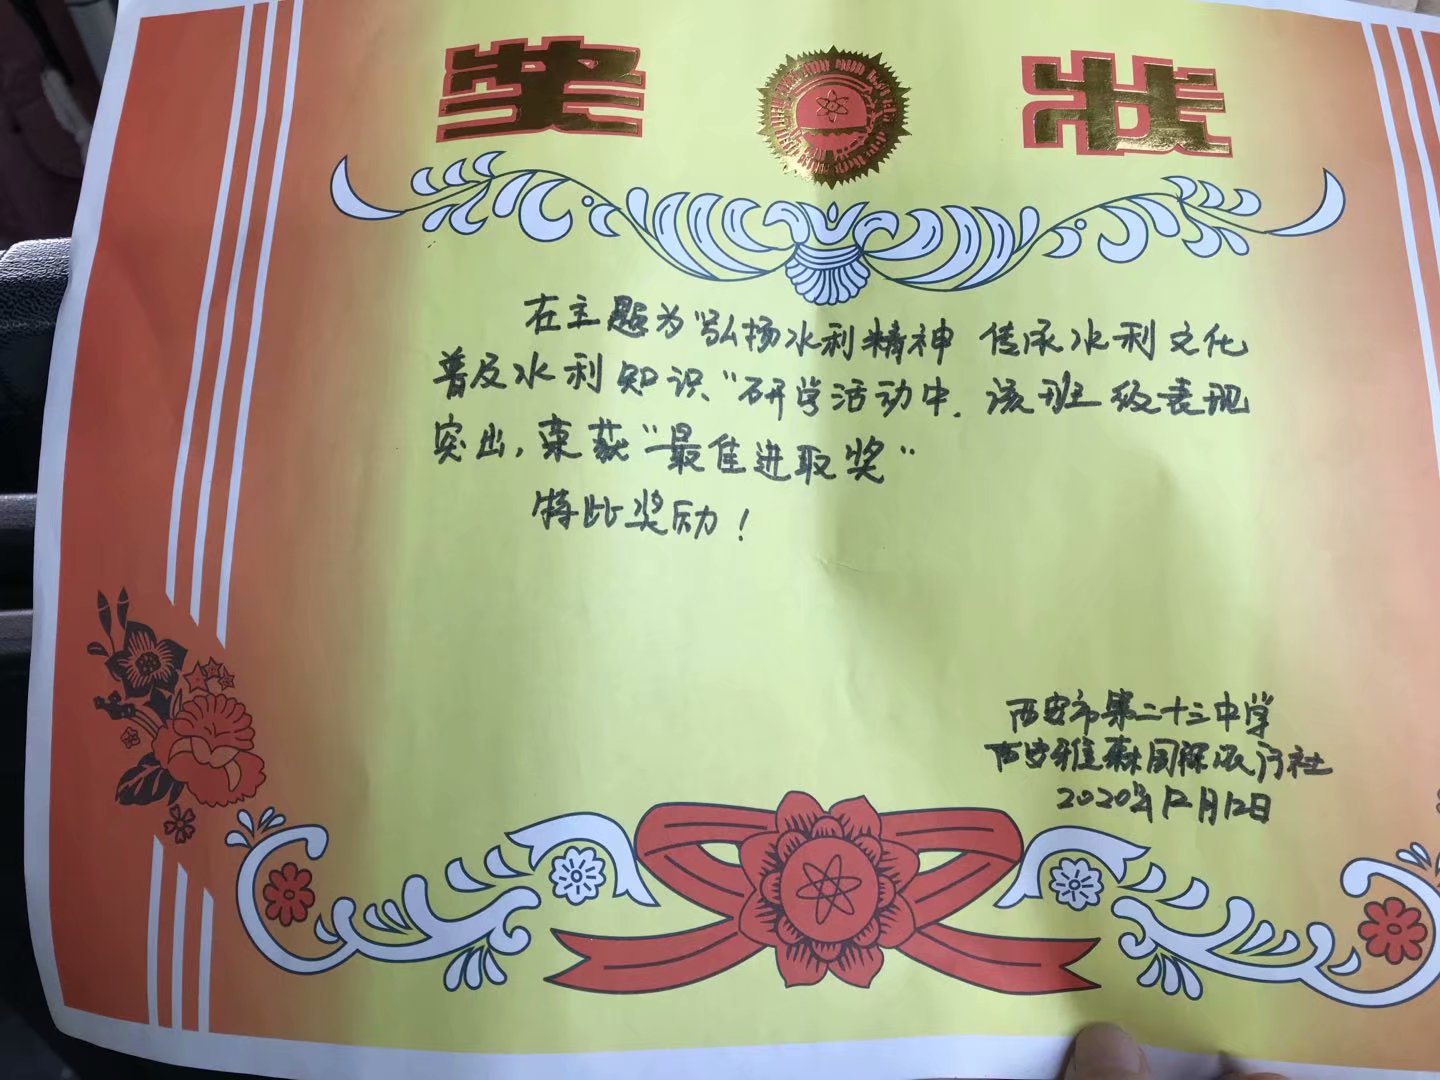 奖状
在主题为"弘扬水利精神 传承水利文化
普及水利知识"研学活动中,该班级表现
突出,荣获"最佳进取奖"
特此奖励!
西安市第二十三中学
西安雅森国际旅行社
2020年12月12日